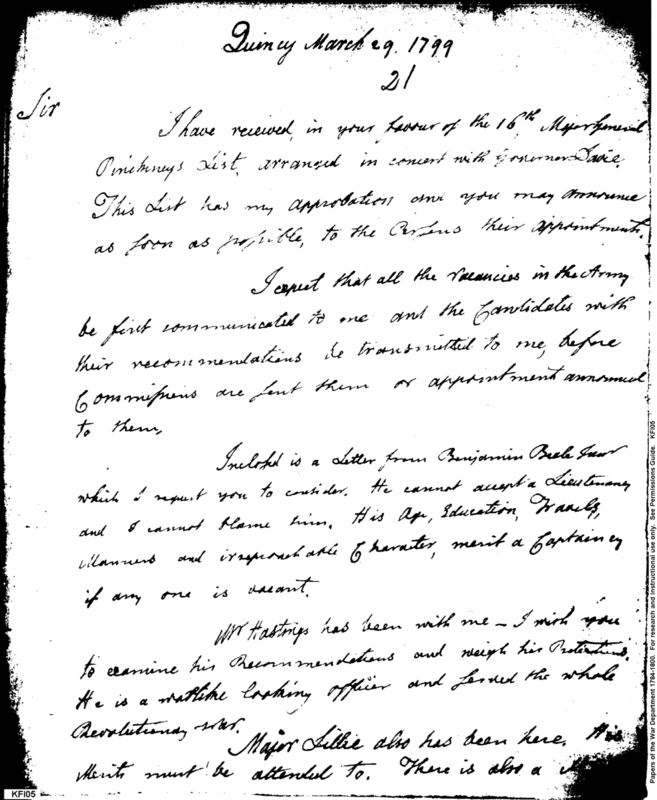 Quincy March 29. 1799
21
Sir
I have received, in your favour of the 16th, Major General
Pinckneys List, arranged in concert with Governor Davie.
This List has my approbation and you may announce
as soon as possible, to the Persons their appointments.
I expect that all the vacancies in the Army
be first communicated to me and the Candidates with
their recommendations be transmitted to me, before
Commissions are sent them or appointment announced
to them.
Inclosed is a Letter from Benjamin Beale Junr
which I request you to consider. He cannot accept a Lieutenancy
and I cannot blame him. His Age, Education, Travels,
Manners and irreproachable Character, merit a Captaincy
if any one is vacant.
Mr Hastings has been with me — I wish you
to examine his Recommendations and weigh his Pretentions.
He is a warlike looking officer and served the whole
Revolutionary war.
Major Lillie also has been here. His
Merits must be attended to. There is also a
KFI05
Papers of the War Department 1784-1800. For research and instructional use only. See Permissions Guide. KFI05